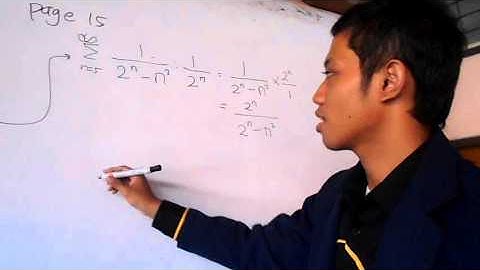 Page 15
∞ ∑ n=5 1/(2ⁿ - n²) : 1/2ⁿ = 1/(2ⁿ - n²) × 2ⁿ/1
= 2ⁿ/(2ⁿ - n²)